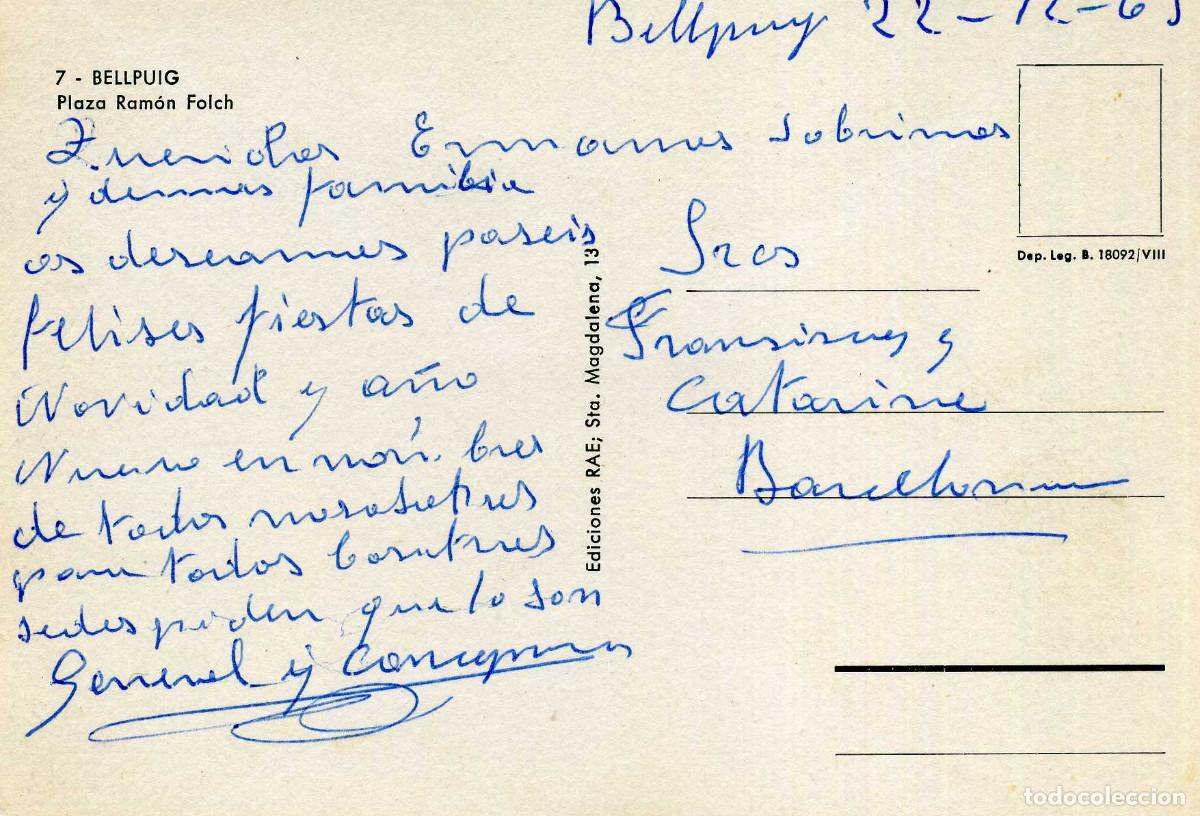 Bellpuy 22-12-65
7 - BELLPUIG
Plaza Ramón Folch
Queridos Ermanos sobrinos
y demas familia
os deseamos paseis
felises fiestas de
Navidad y año
Nuevo en nom bres
de todos nosotres
para todos bosutres
sedespiden que lo son
y Concepcion
Ediciones RAE; Sta. Magdalena, 13
Dep. Leg. B. 18092/VIII
Sres
Fransiscu y
Catarine
Barcelona
todocoleccion